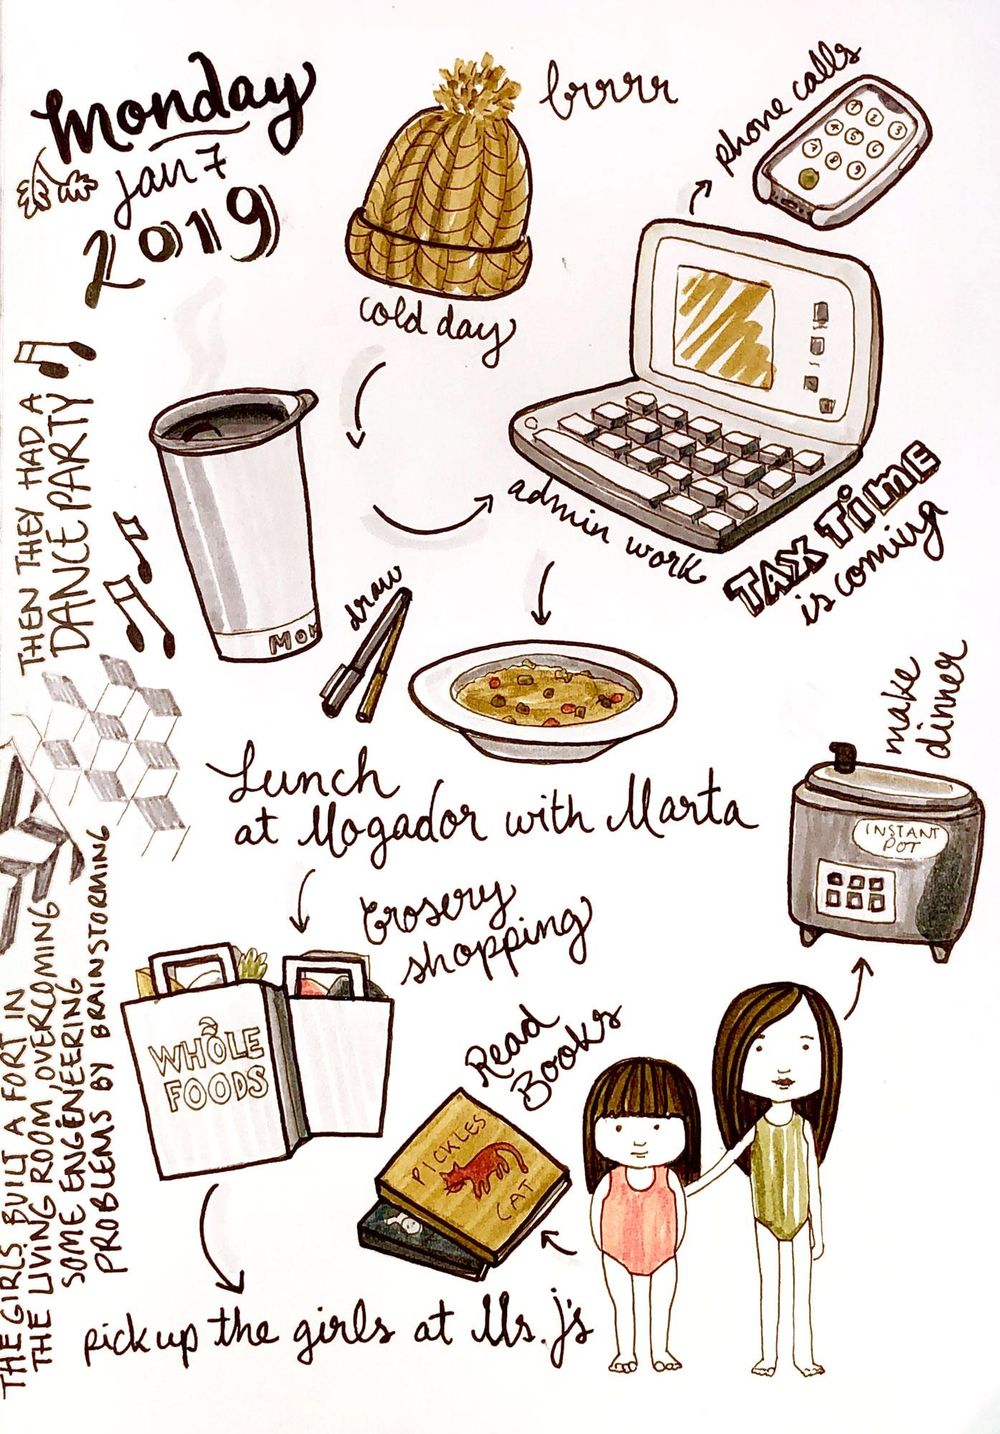 Monday
Jan 7
2019
brrrr
cold day
phone calls
1 2 3
4 5 6
7 8 9
admin work
TAX TIME
is coming
MOM
draw
Lunch
at Mogador with Marta
Grosery
shopping
WHOLE
FOODS
pick up the girls at Ms. J's
Read
Books
PICKLES
CAT
make
dinner
INSTANT
POT
THE GIRLS BUILT A FORT IN
THE LIVING ROOM, OVERCOMING
SOME ENGENEERING
PROBLEMS BY BRAINSTORMING
THEN THEY HAD A
DANCE PARTY